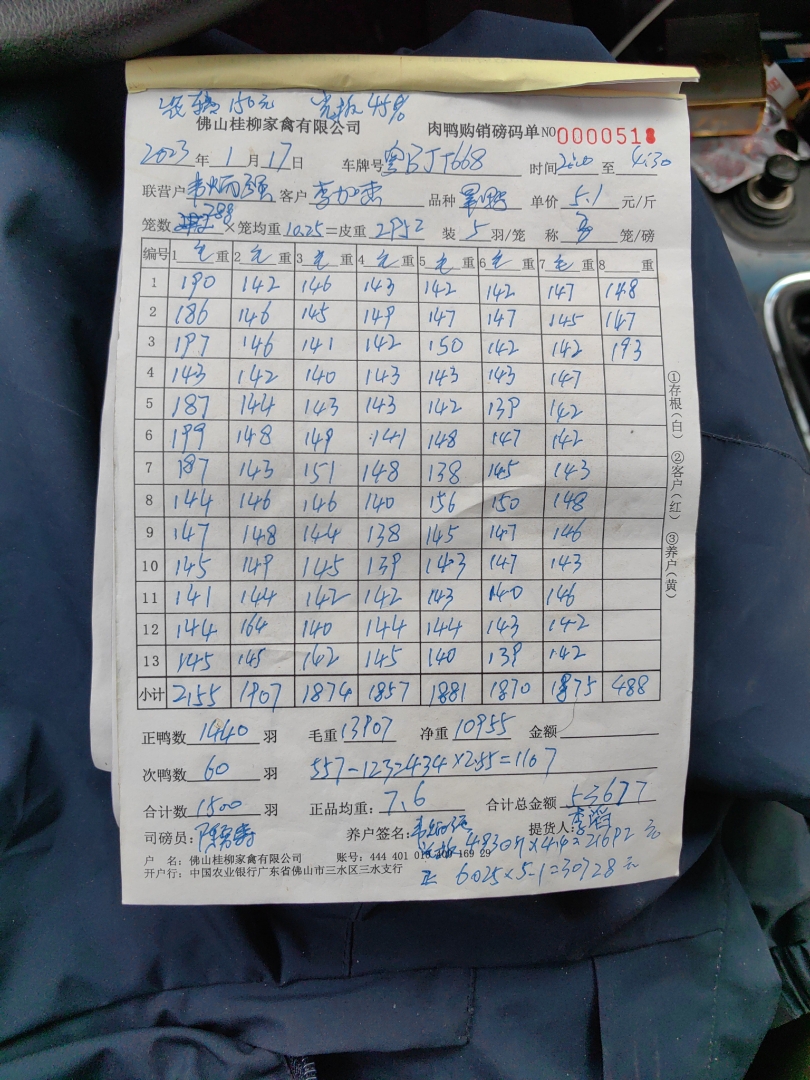 装车 150元 光板 45%
佛山桂柳家禽有限公司 肉鸭购销磅码单 NO 0000518
2023年 1月 17日 车牌号 粤BJT668 时间 至 4:30
联营户 客户 李加杰 品种 单价 5.1 元/斤
笼数 288 ×笼均重 10.25 =皮重 2952 装 5 羽/笼 称 笼/磅
编号 1 毛 重 2 毛 重 3 毛 重 4 毛 重 5 毛 重 6 毛 重 7 毛 重 8 重
1 190 142 146 143 142 142 147 148
2 186 146 145 149 147 147 145 147
3 197 146 141 142 150 142 142 193
4 143 142 140 143 143 143 147
5 187 144 143 143 142 139 142
6 199 148 149 141 148 147 142
7 187 143 151 148 138 145 143
8 144 146 146 140 156 150 148
9 147 148 144 138 145 147 146
10 145 149 145 139 143 147 143
11 141 144 142 142 143 140 146
12 144 164 140 144 144 143 142
13 145 145 142 145 140 139 142
小计 2155 1907 1874 1857 1881 1870 1875 488
①存根(白) ②客户(红) ③养户(黄)
正鸭数 1440 羽 毛重 13907 净重 10955 金额
次鸭数 60 羽 557-123=434×2.55=1107
合计数 1500 羽 正品均重: 7.6 合计总金额 53677
司磅员: 养户签名: 提货人:
4830斤×4.4=21692元
户 名: 佛山桂柳家禽有限公司 账号: 444 401 010 400 169 29
开户行: 中国农业银行广东省佛山市三水区三水支行
正 6025×5.1=30728元